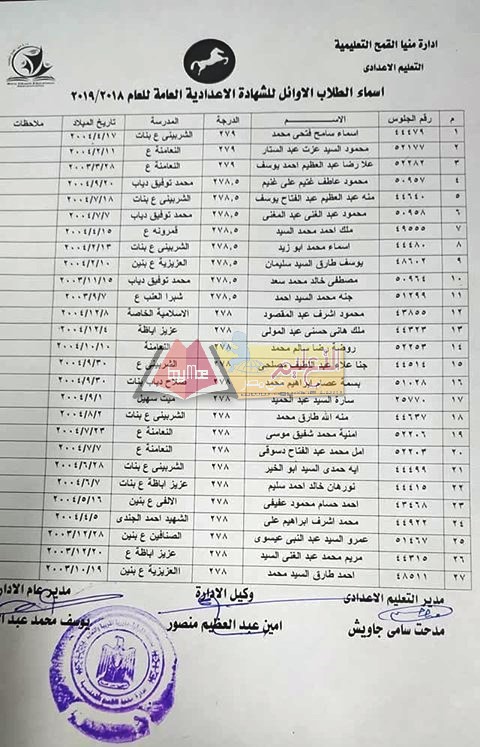 ادارة منيا القمح التعليمية
التعليم الاعدادى
اسماء الطلاب الاوائل للشهادة الاعدادية العامة للعام ٢٠١٩/٢٠١٨
م رقم الجلوس الاســـــم الدرجة المدرسة تاريخ الميلاد ملاحظات
١ ٤٤٤٧٩ اسماء سامح فتحى محمد ٢٧٩ الشربينى ع بنات ٢٠٠٤/٤/١٧
٢ ٥٢١٧٧ محمود السيد عزت عبد الستار ٢٧٩ النعامنة ع ٢٠٠٤/٢/١١
٣ ٥٢٢٨٢ علا رضا عبد العظيم احمد يوسف ٢٧٩ النعامنة ع ٢٠٠٣/٣/٢٨
٤ ٥٠٩٥٧ محمود عاطف غنيم على غنيم ٢٧٨,٥ محمد توفيق دياب ٢٠٠٤/٩/٢٠
٥ ٤٤٦٤٠ منه عبد العظيم عبد الفتاح يوسف ٢٧٨,٥ الشربينى ع بنات ٢٠٠٤/٧/١٨
٦ ٥٠٩٥٨ محمود عبد الغنى عبد المغنى ٢٧٨,٥ محمد توفيق دياب ٢٠٠٤/٧/٧
٧ ٤٩٥٥٥ ملك احمد محمد السيد ٢٧٨,٥ قمرونه ع ٢٠٠٤/٤/١٥
٨ ٤٤٤٨٠ اسماء محمد ابو زيد ٢٧٨,٥ الشربينى ع بنات ٢٠٠٤/٢/١٣
٩ ٤٨٦٠٢ يوسف طارق السيد سليمان ٢٧٨,٥ العزيزية ع بنين ٢٠٠٤/٢/١٠
١٠ ٥٠٩٦٤ مصطفى خالد محمد سعد ٢٧٨,٥ محمد توفيق دياب ٢٠٠٣/١١/١٥
١١ ٥١٢٩٩ جنه محمد السيد احمد ٢٧٨,٥ شبرا العنب ع ٢٠٠٣/٩/٧
١٢ ٤٣٨٥٥ محمود اشرف عبد المقصود ٢٧٨ الاسلامية الخاصة ٢٠٠٤/١٢/٨
١٣ ٤٤٣٢٣ ملك هانى حسنى عبد المولى ٢٧٨ عزيز اباظة ٢٠٠٤/١٢/٤
١٤ ٥٢٢٥٣ روضة رضا سالم محمد ٢٧٨ النعامنة ٢٠٠٤/١٠/١٠
١٥ ٤٤٥١٤ جنا علاء عبد اللطيف ٢٧٨ الشربينى ع ٢٠٠٤/٩/٣٠
١٦ ٥١٠٢٨ بسمة عصام ابراهيم محمد ٢٧٨ صلاح دياب بنات ٢٠٠٤/٩/٣٠
١٧ ٢٥٧٧٠ سارة السيد عبد الحميد ٢٧٨ ميت سهيل ٢٠٠٤/٩/١
١٨ ٤٤٦٣٧ منه الله طارق محمد ٢٧٨ الشربينى ع بنات ٢٠٠٤/٨/٢
١٩ ٥٢٢٠٦ امنية محمد شفيق موسى ٢٧٨ النعامنة ع ٢٠٠٤/٧/٢٣
٢٠ ٥٢٢٠٣ امل محمد عبد الفتاح دسوقى ٢٧٨ النعامنة ع ٢٠٠٤/٧/٧
٢١ ٤٤٤٩٩ ايه حمدى السيد ابو الخير ٢٧٨ الشربينى ع بنات ٢٠٠٤/٦/٢٨
٢٢ ٤٤٤١٥ نورهان خالد احمد سليم ٢٧٨ عزيز اباظة ع بنات ٢٠٠٤/٦/٧
٢٣ ٤٣٤٦٨ احمد حسام محمود عفيفى ٢٧٨ الالفى ع بنين ٢٠٠٤/٥/١٦
٢٤ ٤٤٩٢٢ محمد اشرف ابراهيم على ٢٧٨ الشهيد احمد الجندى ٢٠٠٤/٤/٥
٢٥ ٥١٤٦٧ عمرو السيد عبد النبى عيسوى ٢٧٨ الصنافين ع بنين ٢٠٠٣/١٢/٢٨
٢٦ ٤٤٣١٥ مريم محمد عبد الغنى السيد ٢٧٨ عزيز اباظة ع ٢٠٠٣/١٢/٢٠
٢٧ ٤٨٥١١ احمد طارق السيد محمد ٢٧٨ االعزيزية ع بنين ٢٠٠٣/١٠/١٩
مدير التعليم الاعدادى وكيل الادارة مدير عام الادار
مدحت سامى جاويش امين عبد العظيم منصور يوسف محمد عبد ال